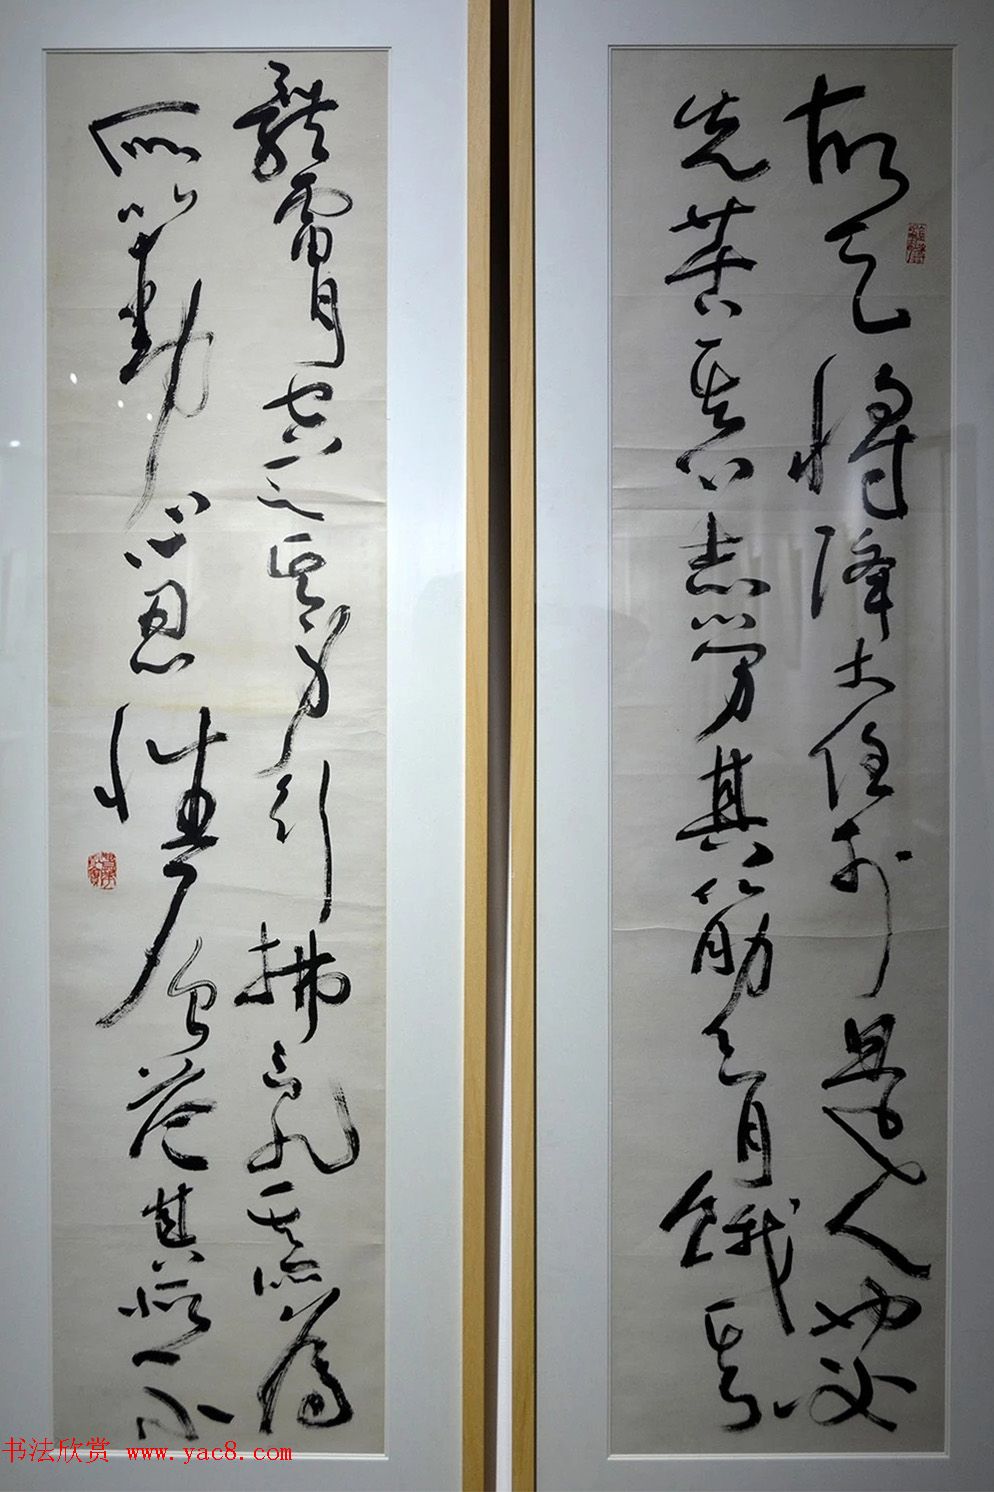 故天將降大任於是人也必
先苦其心志勞其筋骨餓其
體膚空乏其身行拂亂其所為
所以動心忍性曾益其所不
书法欣赏 www.yac8.com